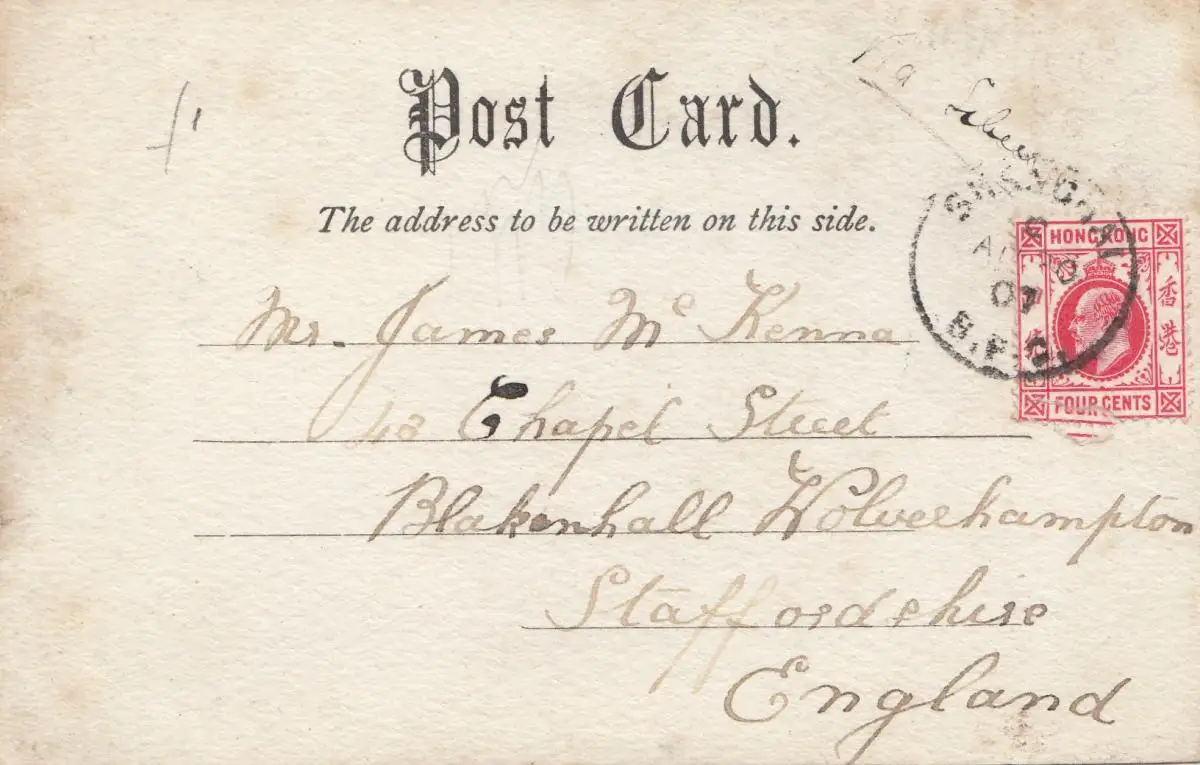 1'
Via
Post Card.
The address to be written on this side.
SHANGHAI
B
AP
07
B.P.O.
HONG KONG
香
港
FOUR CENTS
Mr. James Mc Kenna
48 Chapel Street
Blakenhall Wolverhampton
Staffordshire
England